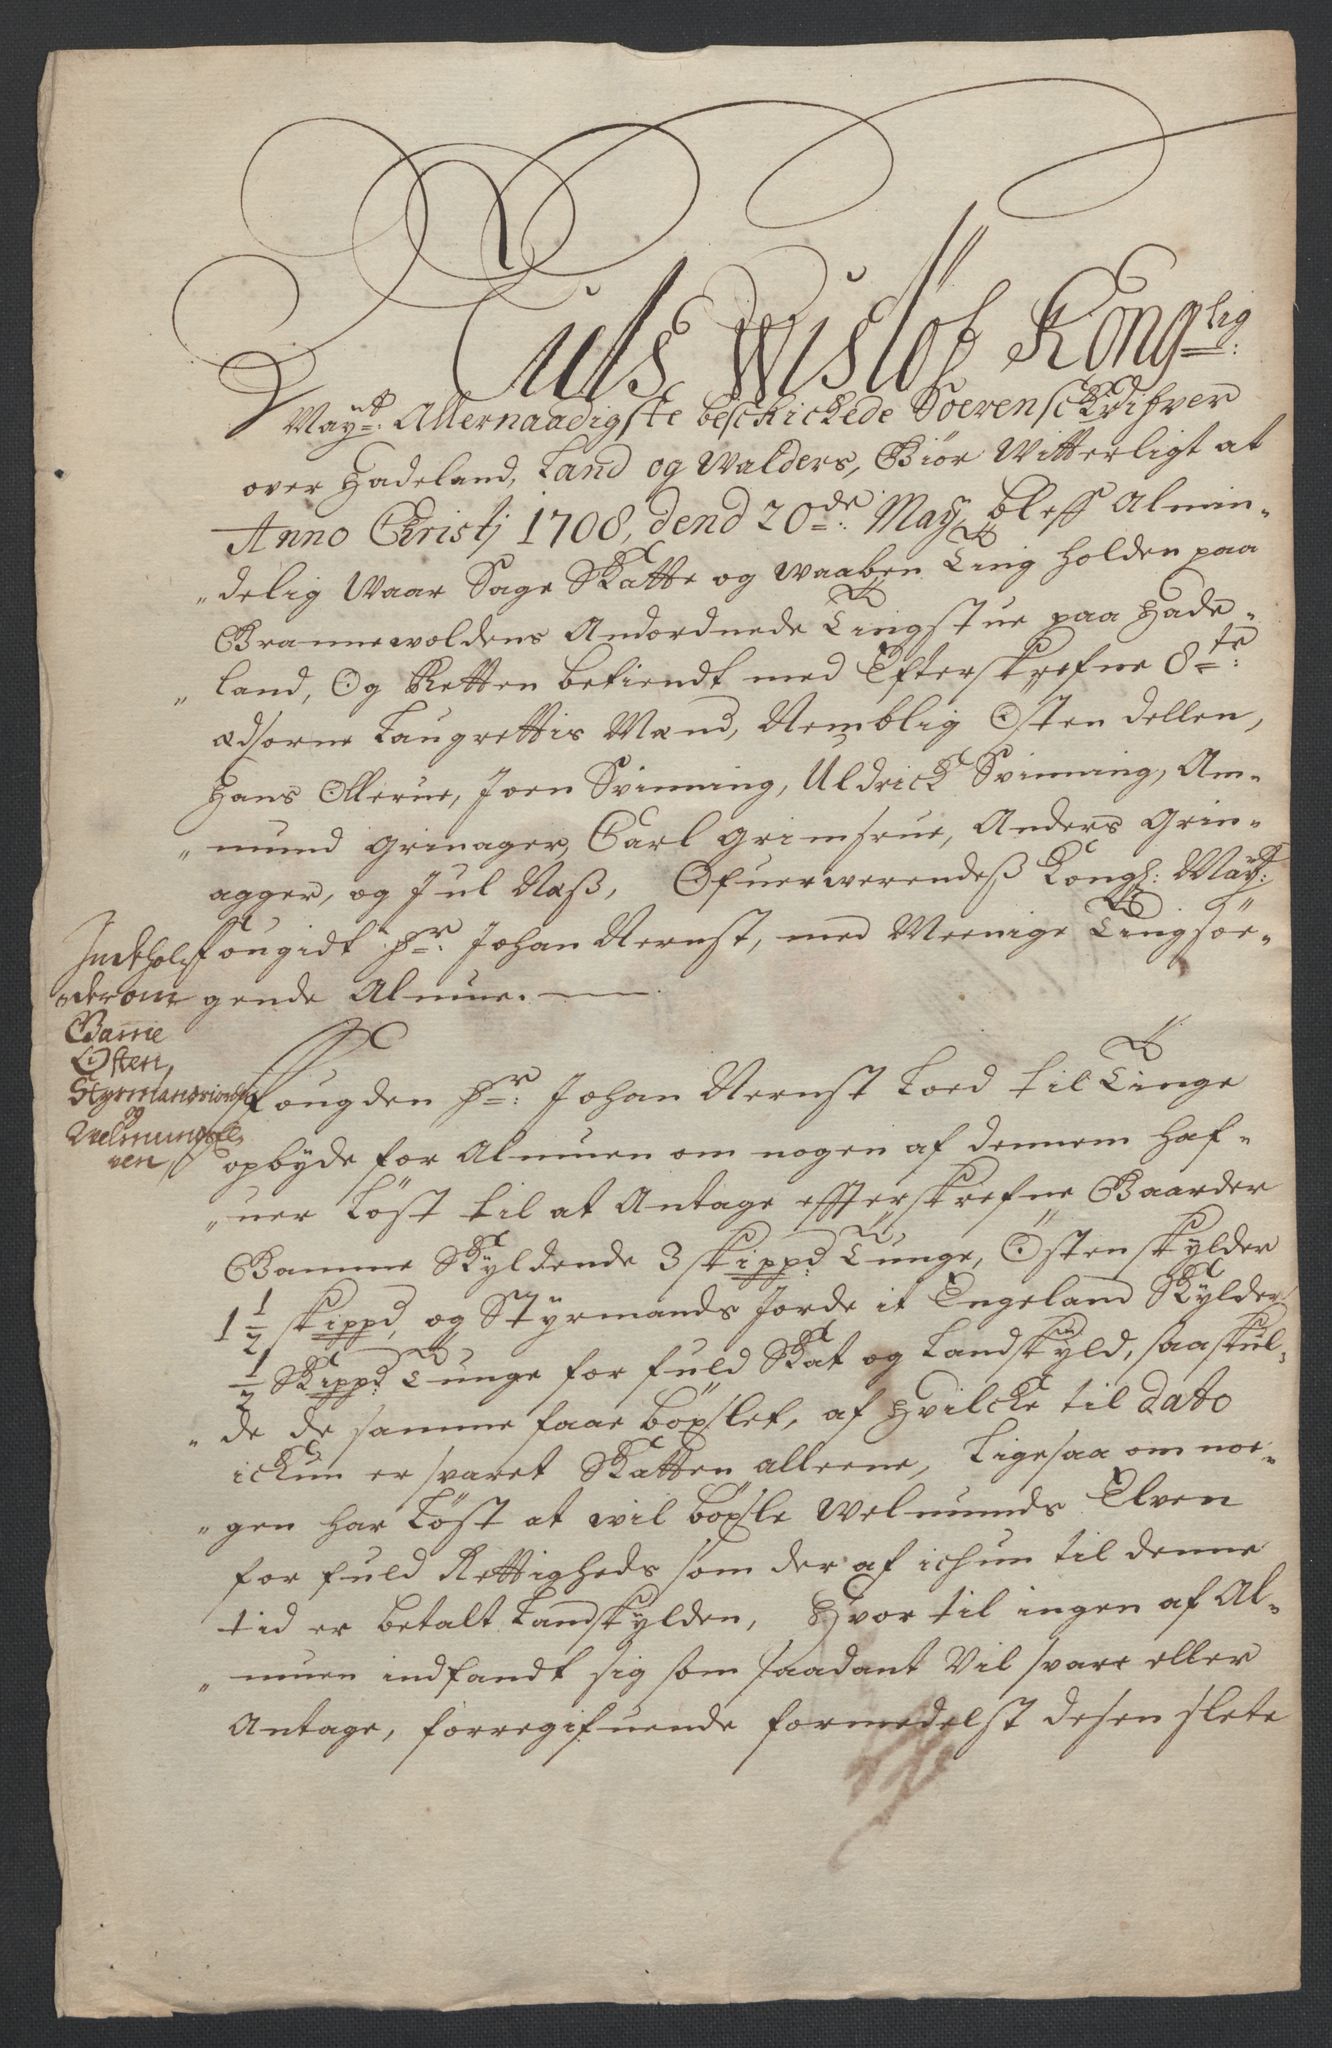 Nils Wislöf Kong:lig
May:tt Allernaadigste beschickede Soerenschrifver
over Hadeland, Land og Walders, Giör Witterligt at
Anno Christj 1708, dend 20de: Maÿ bleff Almin-
delig Waar Sage Skatte og Waaben Ting holden paa
Grannevoldens Andordnede Tingstue paa Hade-
land, Og Retten betiendt med Efterskrefne 8te:
Edsorne Laugrettis Mænd, Nemblig Østen Dellen,
Hans Ollerue, Joen Svinning, Uldrick Svinning, Am-
mund Grinager, Carl Grimsrue, Anders Grin-
agger, og Jul Næß, Ofuerwerendeß Kongl: Maÿt:
Fougidt Hr: Johan Nernst, med Meenige Tingsöe-
gende Almue.
Indkold
ederom
Gamme
Østen,
Styrmandsiorde
og
Velmunds El-
ven
Fougden Hr: Johan Nernst Loed til Tinge
opbÿde for Almuen om nogen af dennem haf-
uer Löst til at Antage effterskrefne Gaarder
Gamme Skÿldende 3 skippd Tunge, Østen skÿlder
1 1/2 skippd, og Stÿrmands Jorde it Engeland Skÿlder
1/2 Skippd Tunge for fuld Skat og Landskÿld, saa skul-
de de samme faae böxslet, af Hvilcke til dato
ickun er svaret Skatten alleene, Ligesaa om noe-
gen har Löst at wil böxsle Welmunds Elven
for fuld Rettigheds som der af ichun til denne
tid er betalt Landskÿlden, Hvor til ingen af Al-
muen indfandt sig som saadant Vil svare eller
Antage, forregifuende formedelst desen slete